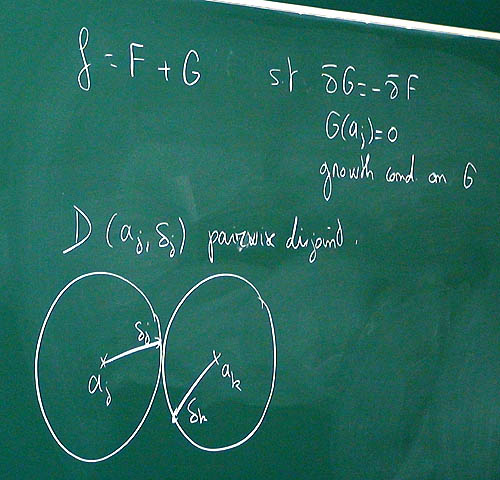 f = F + G   st   ∂̄G = -∂̄F
G(a_j) = 0
growth cond. on G
D (a_j, δ_j) pairwise disjoint.
δ_j
a_j
a_k
δ_k